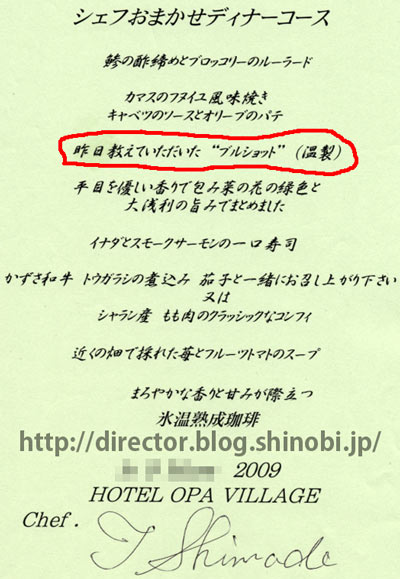 シェフおまかせディナーコース
鯵の酢締めとブロッコリーのルーラード
カマスのフヌイユ風味焼き
キャベツのソースとオリーブのパテ
昨日教えていただいた “ブルショット” (温製)
平目を優しい香りで包み菜の花の緑色と
大浅利の旨みでまとめました
イナダとスモークサーモンの一口寿司
かずさ和牛 トウガラシの煮込み 茄子と一緒にお召し上がり下さい
又は
シャラン産 もも肉のクラッシックなコンフィ
近くの畑で採れた苺とフルーツトマトのスープ
まろやかな香りと甘みが際立つ
氷温熟成珈琲
http://director.blog.shinobi.jp/
2009
HOTEL OPA VILLAGE
Chef .
T Shimade